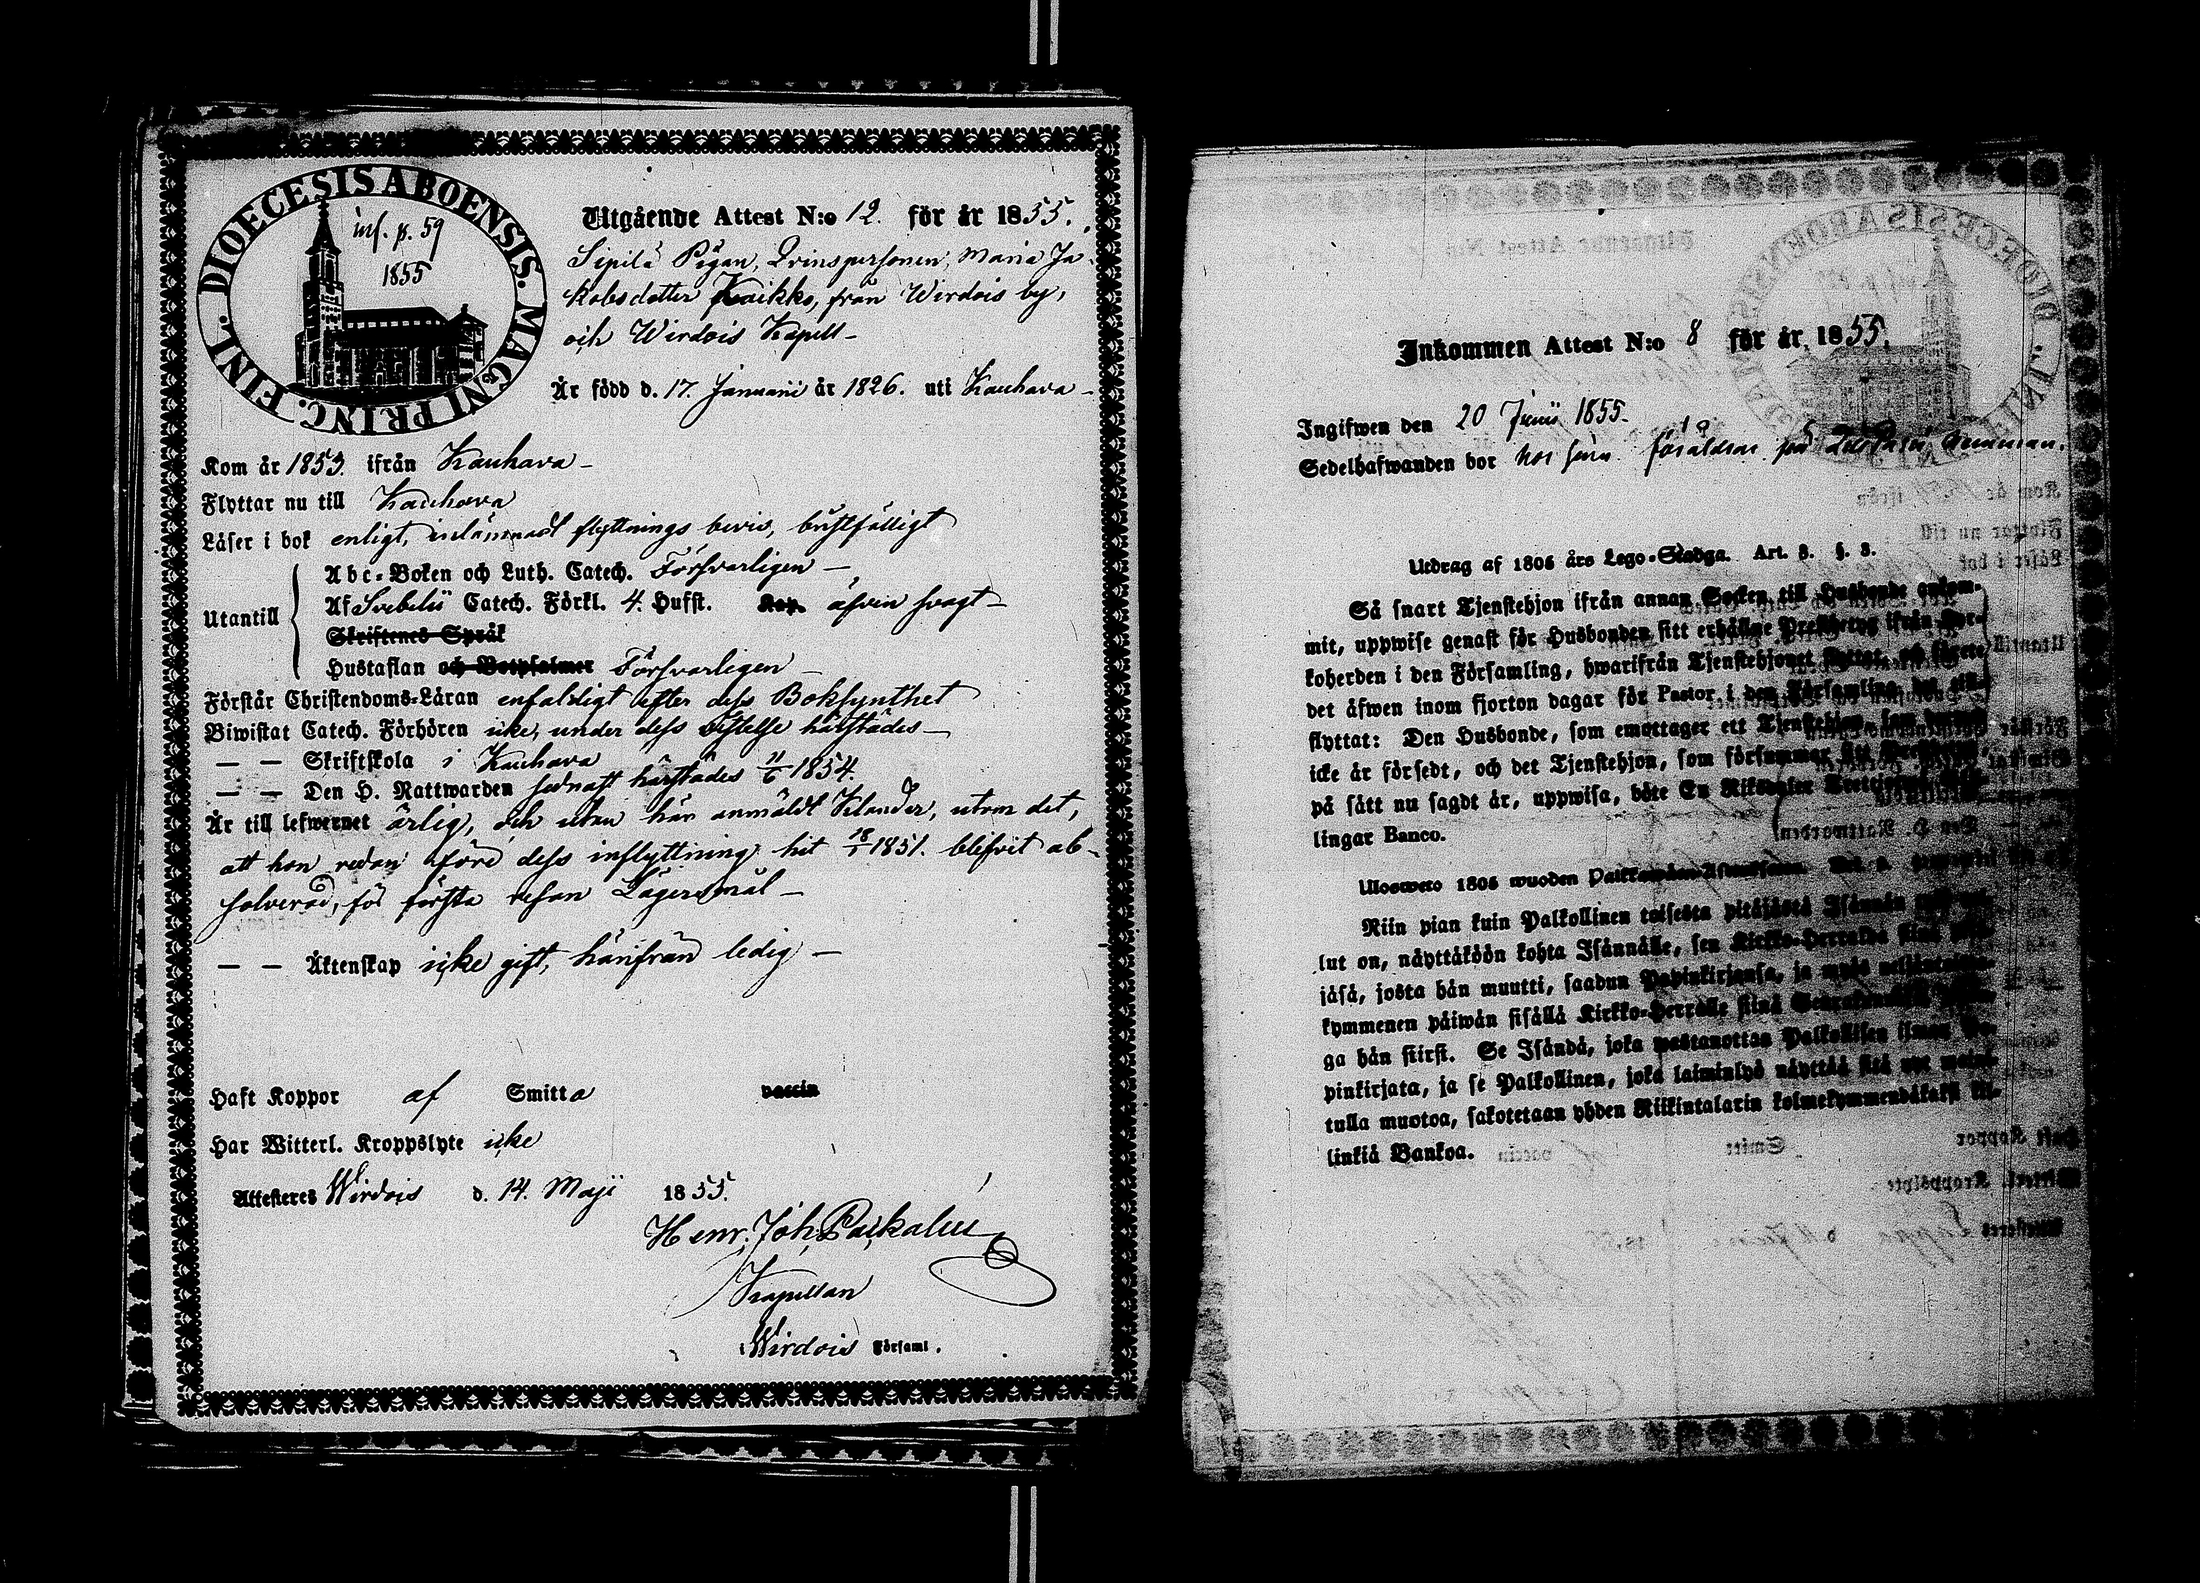 DIOECESIS ABOENSIS. MAGNI PRINC. FINL.
inf. p. 59
1855
Utgående Attest N:o 12. för år 1855.
Sipilä Pigan, Qvinspersonen, Maria Ja-
kobsdotter Kaikko, från Wirdois by,
och Wirdois Kapell-
Är född d. 17. Januarii år 1826. uti Kauhava-
Kom år 1853. ifrån Kauhava-
Flyttar nu till Kauhava
Läser i bok enligt, inlämnadt flyttnings bevis, bristfälligt
Utantill
Abc-Boken och Luth. Catech. Försvarligen-
Af Svebelii Catech. Förkl. 4. Hufst. Kap. äfven svagt-
Skriftenes Språk
Hustaflan och Botpsalmer Försvarligen-
Förstår Christendoms-Läran enfaldigt efter dess Boksynthet
Biwistat Catech. Förhören icke, under dess vistelse härstädes-
— — Skriftskola i Kauhava
— — Den H. Nattwarden sednast härstädes 11/6 1854.
Är till lefwernet ärlig, och utan här anmäldt Klander, utom det,
att hon redan före dess inflyttning hit 18/1 1851. blifvit ab-
solverad, för första resan Lägersmål-
— — Äktenskap icke gift, härifrån ledig-
Haft Koppor af Smitta vaccin
Har Witterl. Kroppslyte icke
Attesteres Wirdois d. 14. Maji 1855.
Henr. Joh. Packalen
Kapellan
i Wirdois Församl.
Inkommen Attest N:o 8 för år 1855.
Ingifwen den 20 Junii 1855.
Sedelhafwanden bor hos sina föräldrar på
Utdrag af 1805 års Lego-Stadga. Art. 3. §. 3.
Så snart Tjenstehjon ifrån annan Socken till Husbonde ankom-
mit, uppwise genast för Husbonden sitt erhållne Prestbetyg ifrån Kyr-
koherden i den Församling, hwarifrån Tjenstehjonet flyttat, och förete
det äfwen inom fjorton dagar för Pastor i den Församling det till-
flyttat: Den Husbonde, som emottager ett Tjenstehjon, som dermed
icke är försedt, och det Tjenstehjon, som försummar sitt Prestbetyg,
på sätt nu sagdt är, uppwisa, böte En Riksdaler Trettjotwå Skil-
lingar Banco.
Ulosweto 1805 wuoden
Niin pian kuin Palkollinen toisesta pitäjästä Isännän
lut on, näyttäköön kohta Isännälle, sen Kirkko-Herralda siinä
jäsä, josta hän muutti, saadun Papinkirjansa, ja myös neljäntoista-
kymmenen päiwän sisällä Kirkko-Herralle siinä Seurakunnassa
ga hän siirsi. Se Isändä, joka wastanottaa Palkollisen ilman Pa-
pinkirjata, ja se Palkollinen, joka laiminlyö näyttää sitä nyt maini-
tulla muotoa, sakotetaan yhden Riikintalarin kolmekymmendäkaksi kil-
linkiä Bankoa.